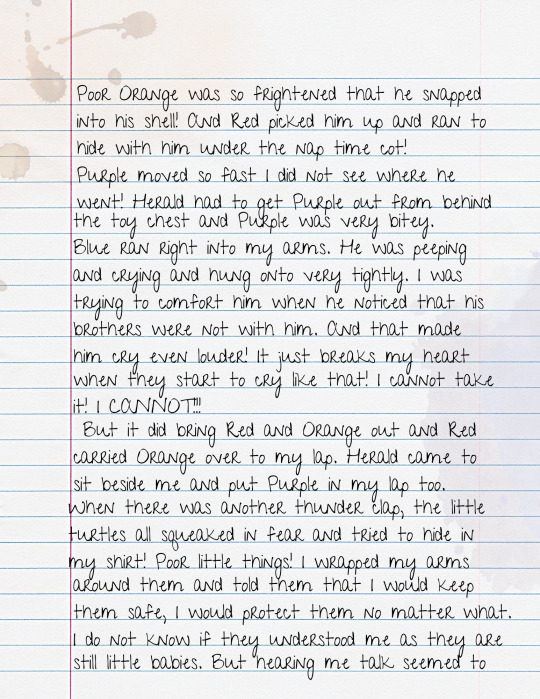 Poor Orange was so frightened that he snapped
into his shell! And Red picked him up and ran to
hide with him under the nap time cot!
Purple moved so fast I did not see where he
went! Herald had to get Purple out from behind
the toy chest and Purple was very bitey.
Blue ran right into my arms. He was peeping
and crying and hung onto very tightly. I was
trying to comfort him when he noticed that his
brothers were not with him. And that made
him cry even louder! It just breaks my heart
when they start to cry like that! I cannot take
it! I CANNOT!!!
But it did bring Red and Orange out and Red
carried Orange over to my lap. Herald came to
sit beside me and put Purple in my lap too.
When there was another thunder clap, the little
turtles all squeaked in fear and tried to hide in
my shirt! Poor little things! I wrapped my arms
around them and told them that I would keep
them safe, I would protect them no matter what.
I do not know if they understood me as they are
still little babies. But hearing me talk seemed to